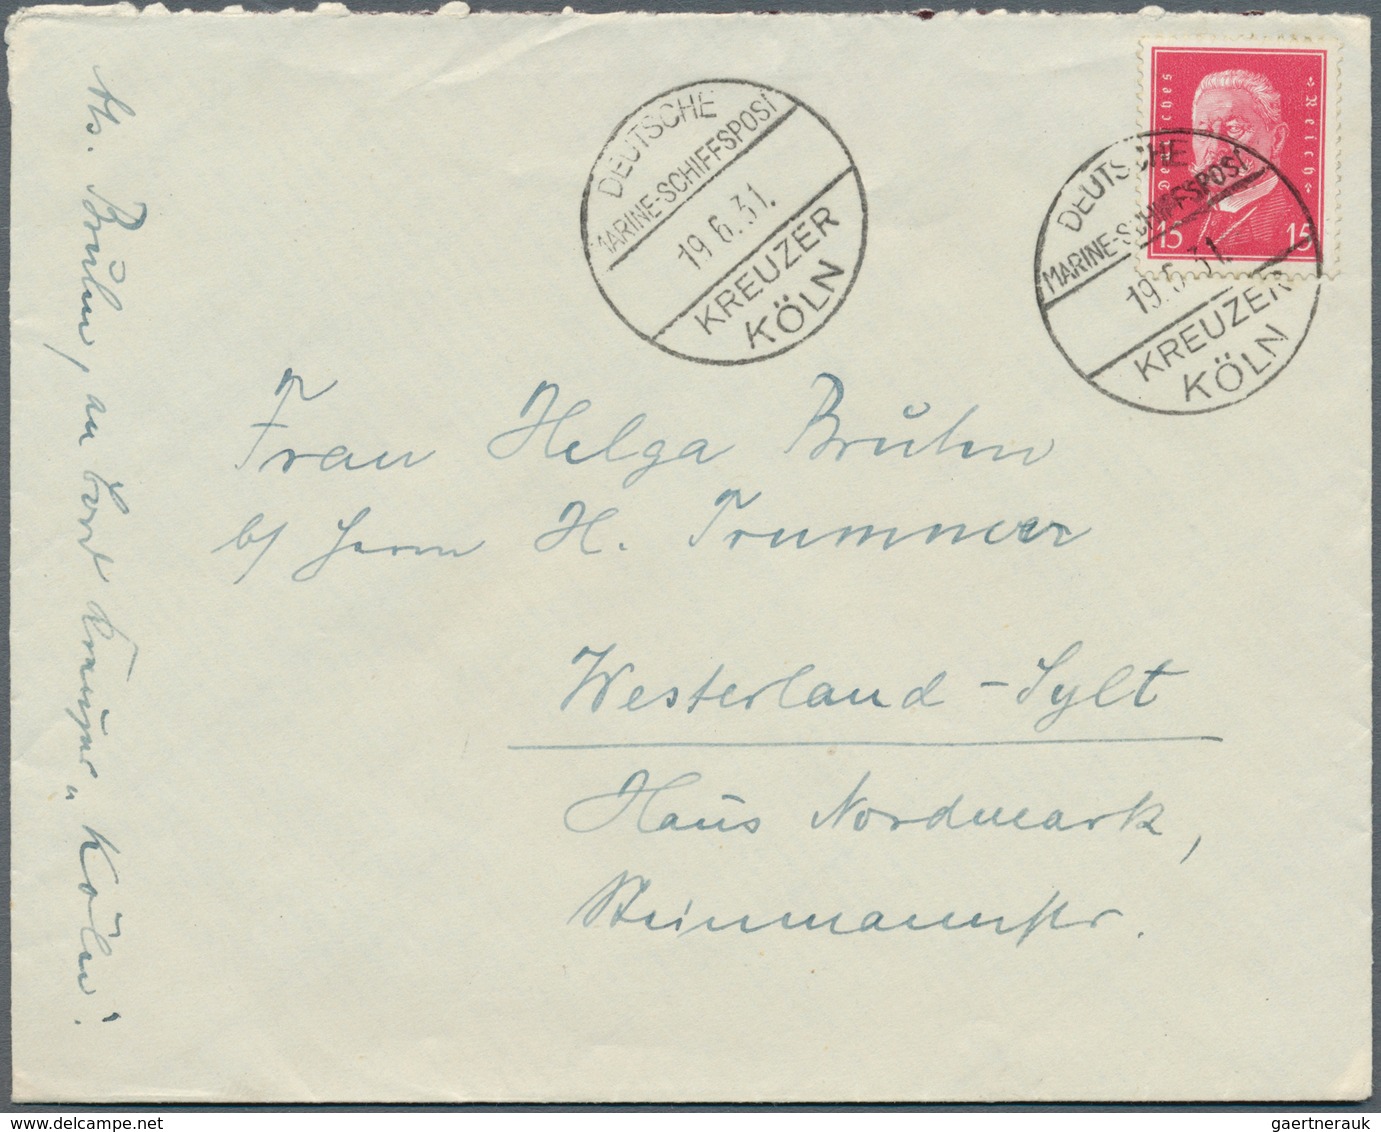 Deutsches Reich
15 15
DEUTSCHE
MARINE-SCHIFFSPOST
19.6.31.
KREUZER
KÖLN
DEUTSCHE
MARINE-SCHIFFSPOST
19.6.31.
KREUZER
KÖLN
Frau Helga Bruhn
b/ Herrn H. Trummer
Westerland-Sylt
Haus Nordmark,
Steinmannstr.
Abs. Bruhn, an Bord Kreuzer „Köln"
gaertnerauk @ delcampe.net